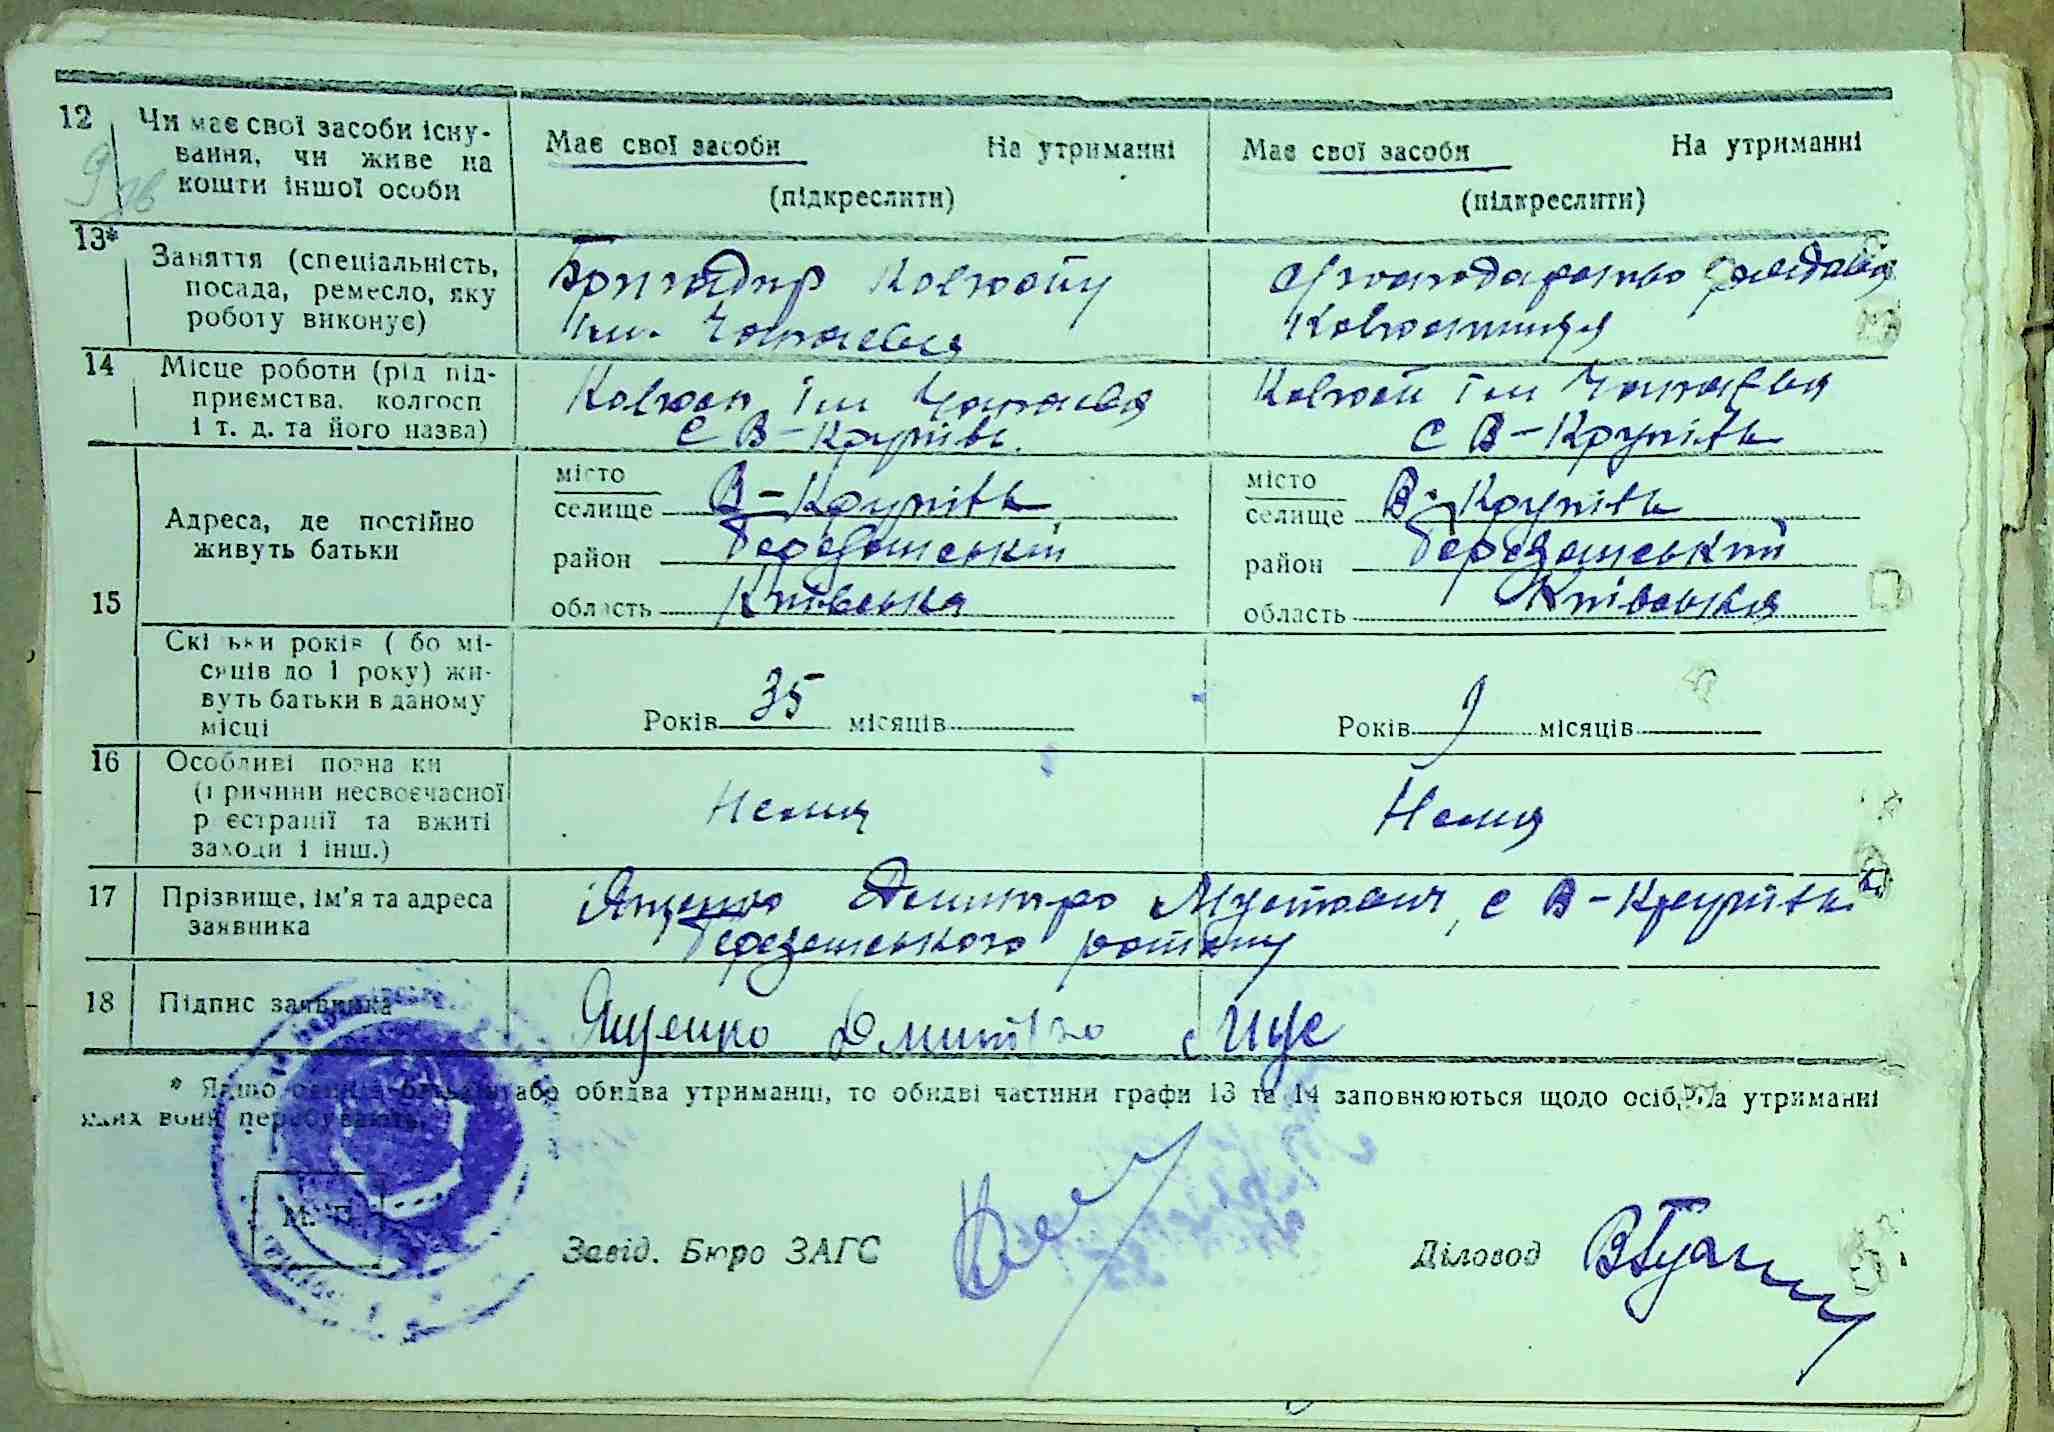 12 Чи має свої засоби існу-
вання, чи живе на
кошти іншої особи
Має свої засоби На утриманні
(підкреслити)
Має свої засоби На утриманні
(підкреслити)
13* Заняття (спеціальність,
посада, ремесло, яку
роботу виконує)
Бригадир Колгоспу
Ім. Чапаєва
Колгоспниця
14 Місце роботи (рід під-
приємства, колгосп
і т. д. та його назва)
Колгосп Ім Чапаєва
с В-Крупіль
Колгосп Ім Чапаєва
с В-Крупіль
15 Адреса, де постійно
живуть батьки
місто
селище В-Крупіль
район Березанський
область Київська
місто
селище В-Крупіль
район Березанський
область Київська
Скільки років (або мі-
сяців до 1 року) жи-
вуть батьки в даному
місці
Років 35 місяців
Років 9 місяців
16 Особливі познаки
(причини несвоєчасної
реєстрації та вжиті
заходи і інш.)
Нема
Нема
17 Прізвище, ім'я та адреса
заявника
Ященко Дмитро Мусійович, с В-Крупіль
Березанського району
18 Підпис заявника
Ященко Дмитро Мус
* Якщо один з батьків або обидва утриманці, то обидві частини графи 13 та 14 заповнюються щодо осіб, на утриманні
яких вони перебувають.
М. П.
Завід. Бюро ЗАГС
Діловод